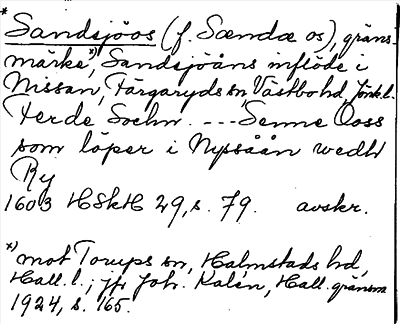 *
Sandsjöos (f. Sændæ os), gräns-
märke *), Sandsjöåns inflöde i
Nissan, Färgaryds sn, Västbo hd, Jönk.l.
Ferde Sochn. --- Senne Ooss
som löper i Nyssåån wedh
Ry
1603 HSkH 29, s. 79. avskr.
*) mot Torups sn, Halmstads hd,
Hall. l.; jfr Joh. Kalén, Hall. gränsm.
1924, s. 165.